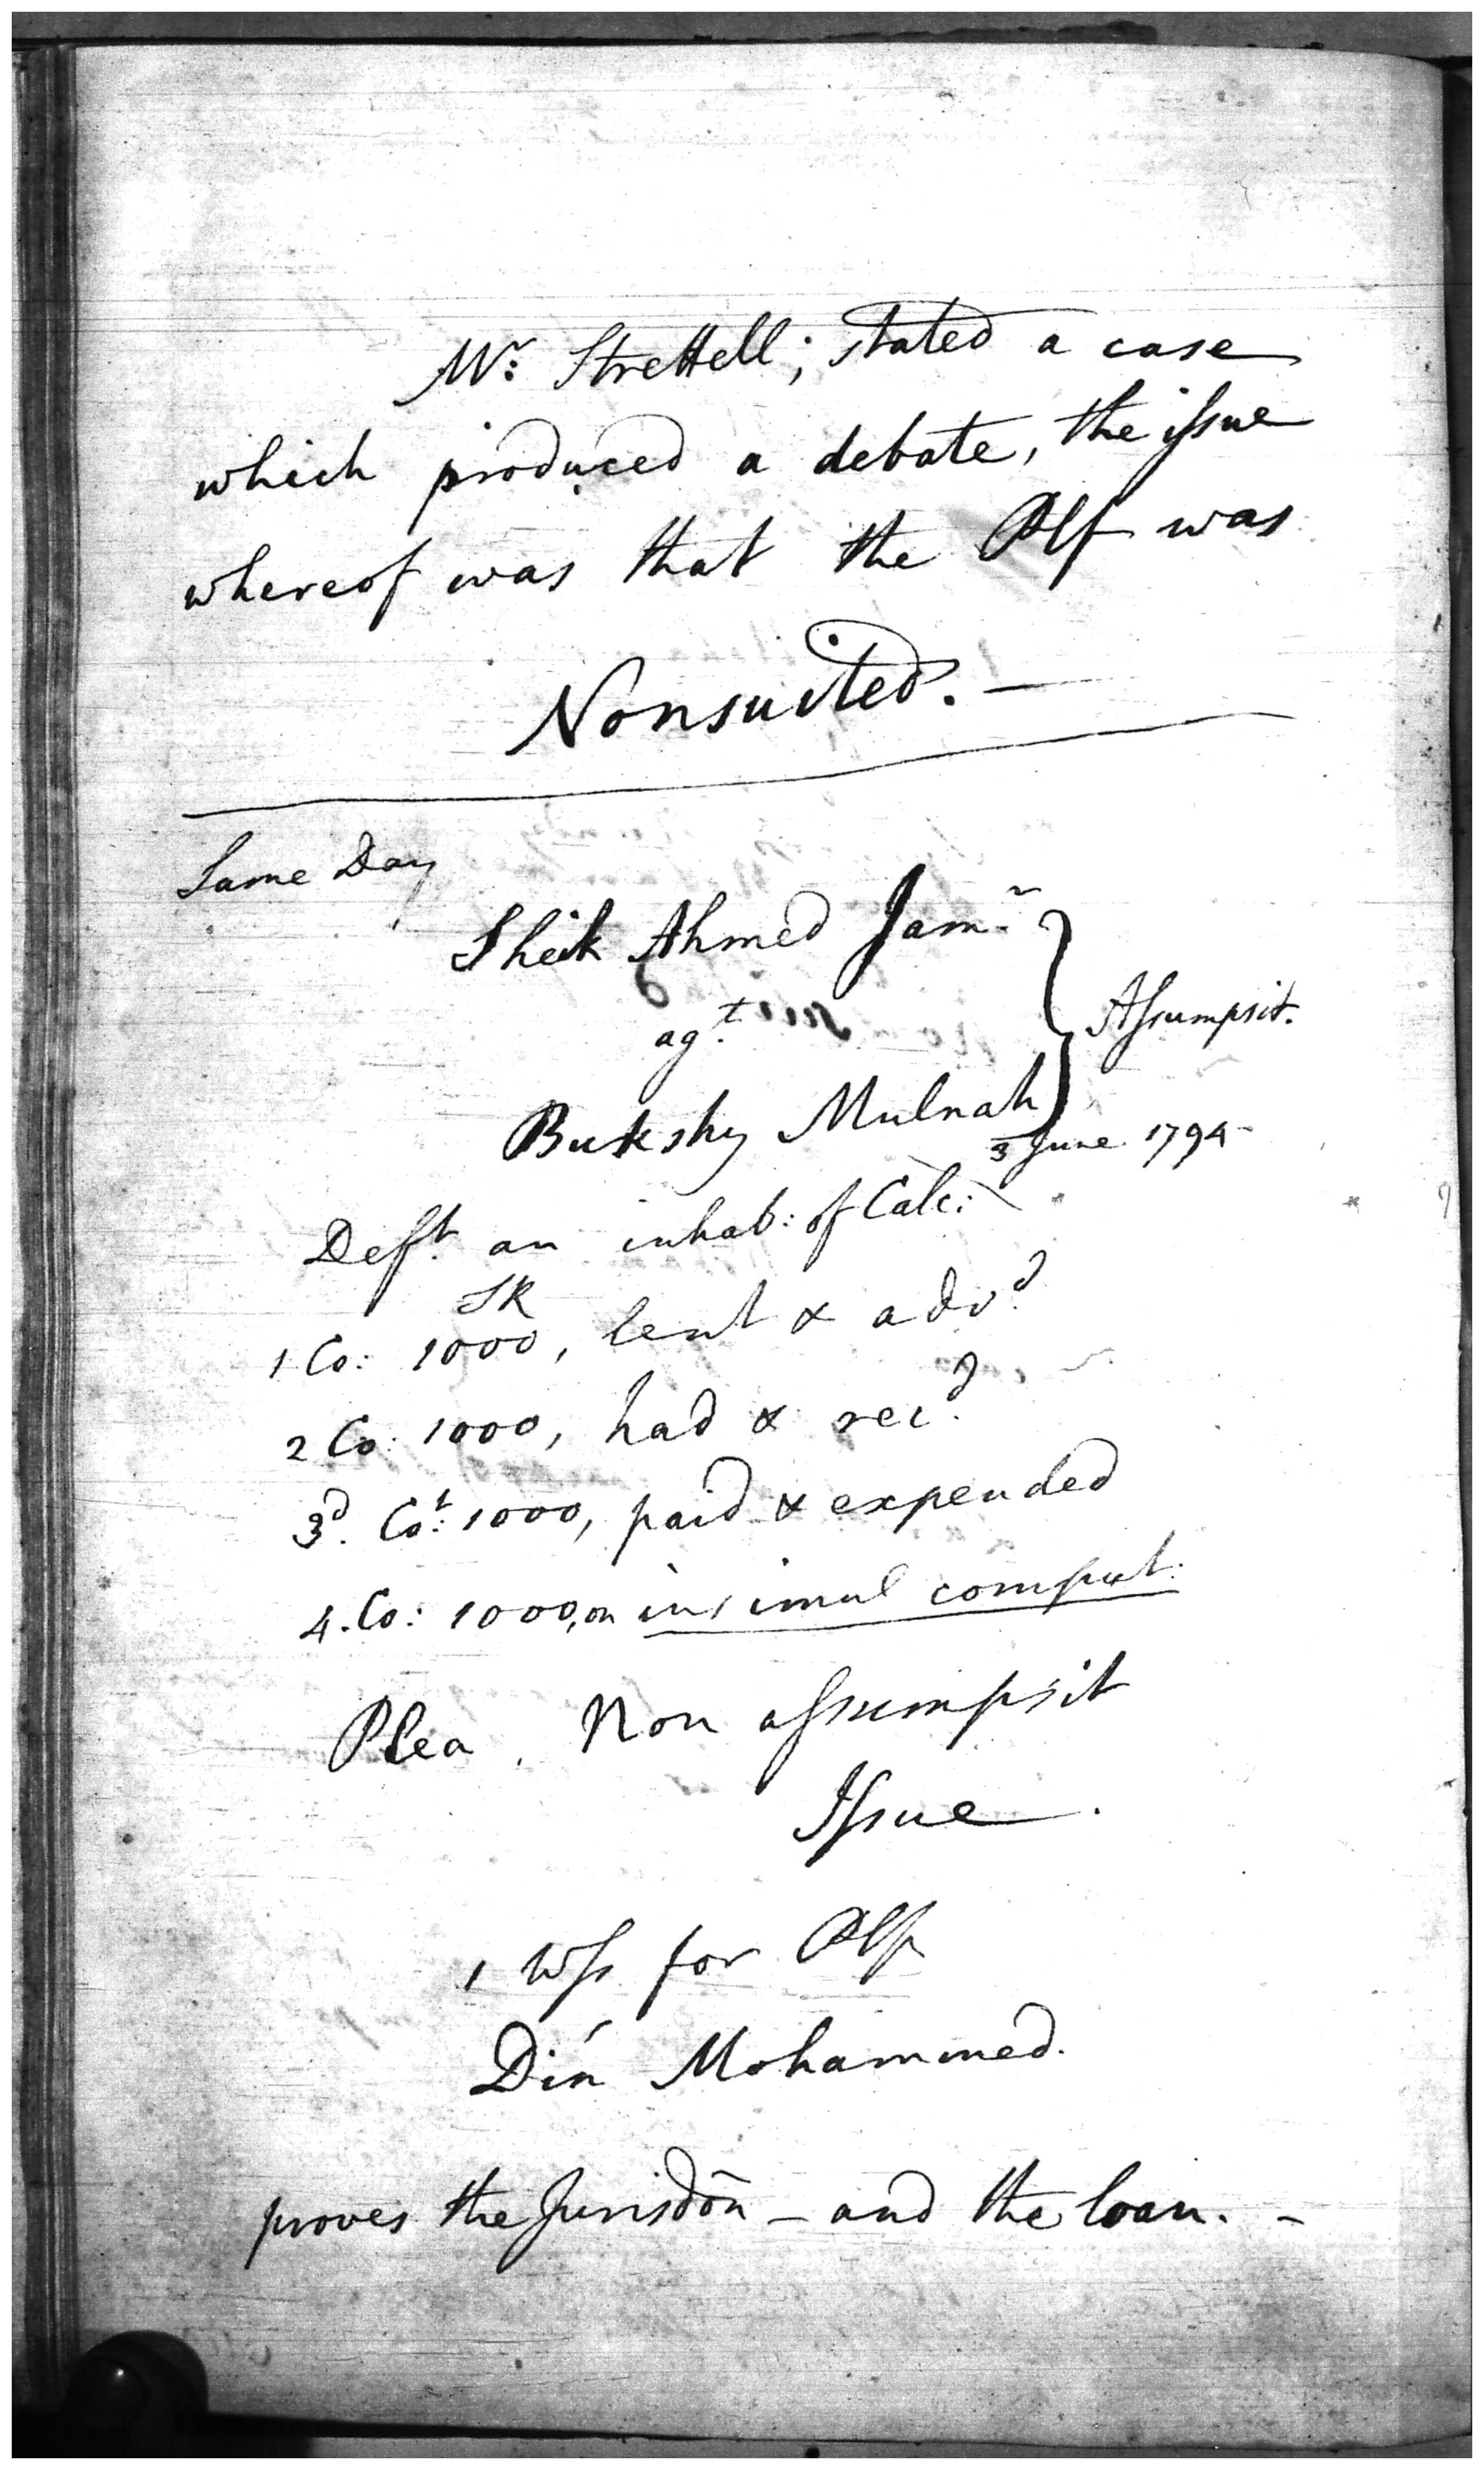 Mr. Strettell; stated a case
which produced a debate, the issue
whereof was that the Plf was
Nonsuited. —
Same Day
Sheik Ahmed Jamr
agt.
Assumpsit.
Bukshy Mulnah
3 June 1794
Deft. an inhab: of Calc:
SR
1 Co: 1000, lent & advd.
2 Co: 1000, had & recd.
3d. Cot: 1000, paid & expended
4. Co: 1000, on insimul comput:
Plea. Non assumpsit
Issue.
1 Wss for Plf
Din Mohammed.
proves the Jurisdon – and the loan. –